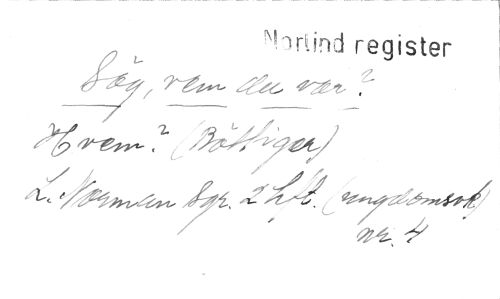 Norlind register
Säg, vem du var?
Hvem? (Böttiger)
L. Norman Sgr. 2 hft. (ungdomsvk)
nr. 4